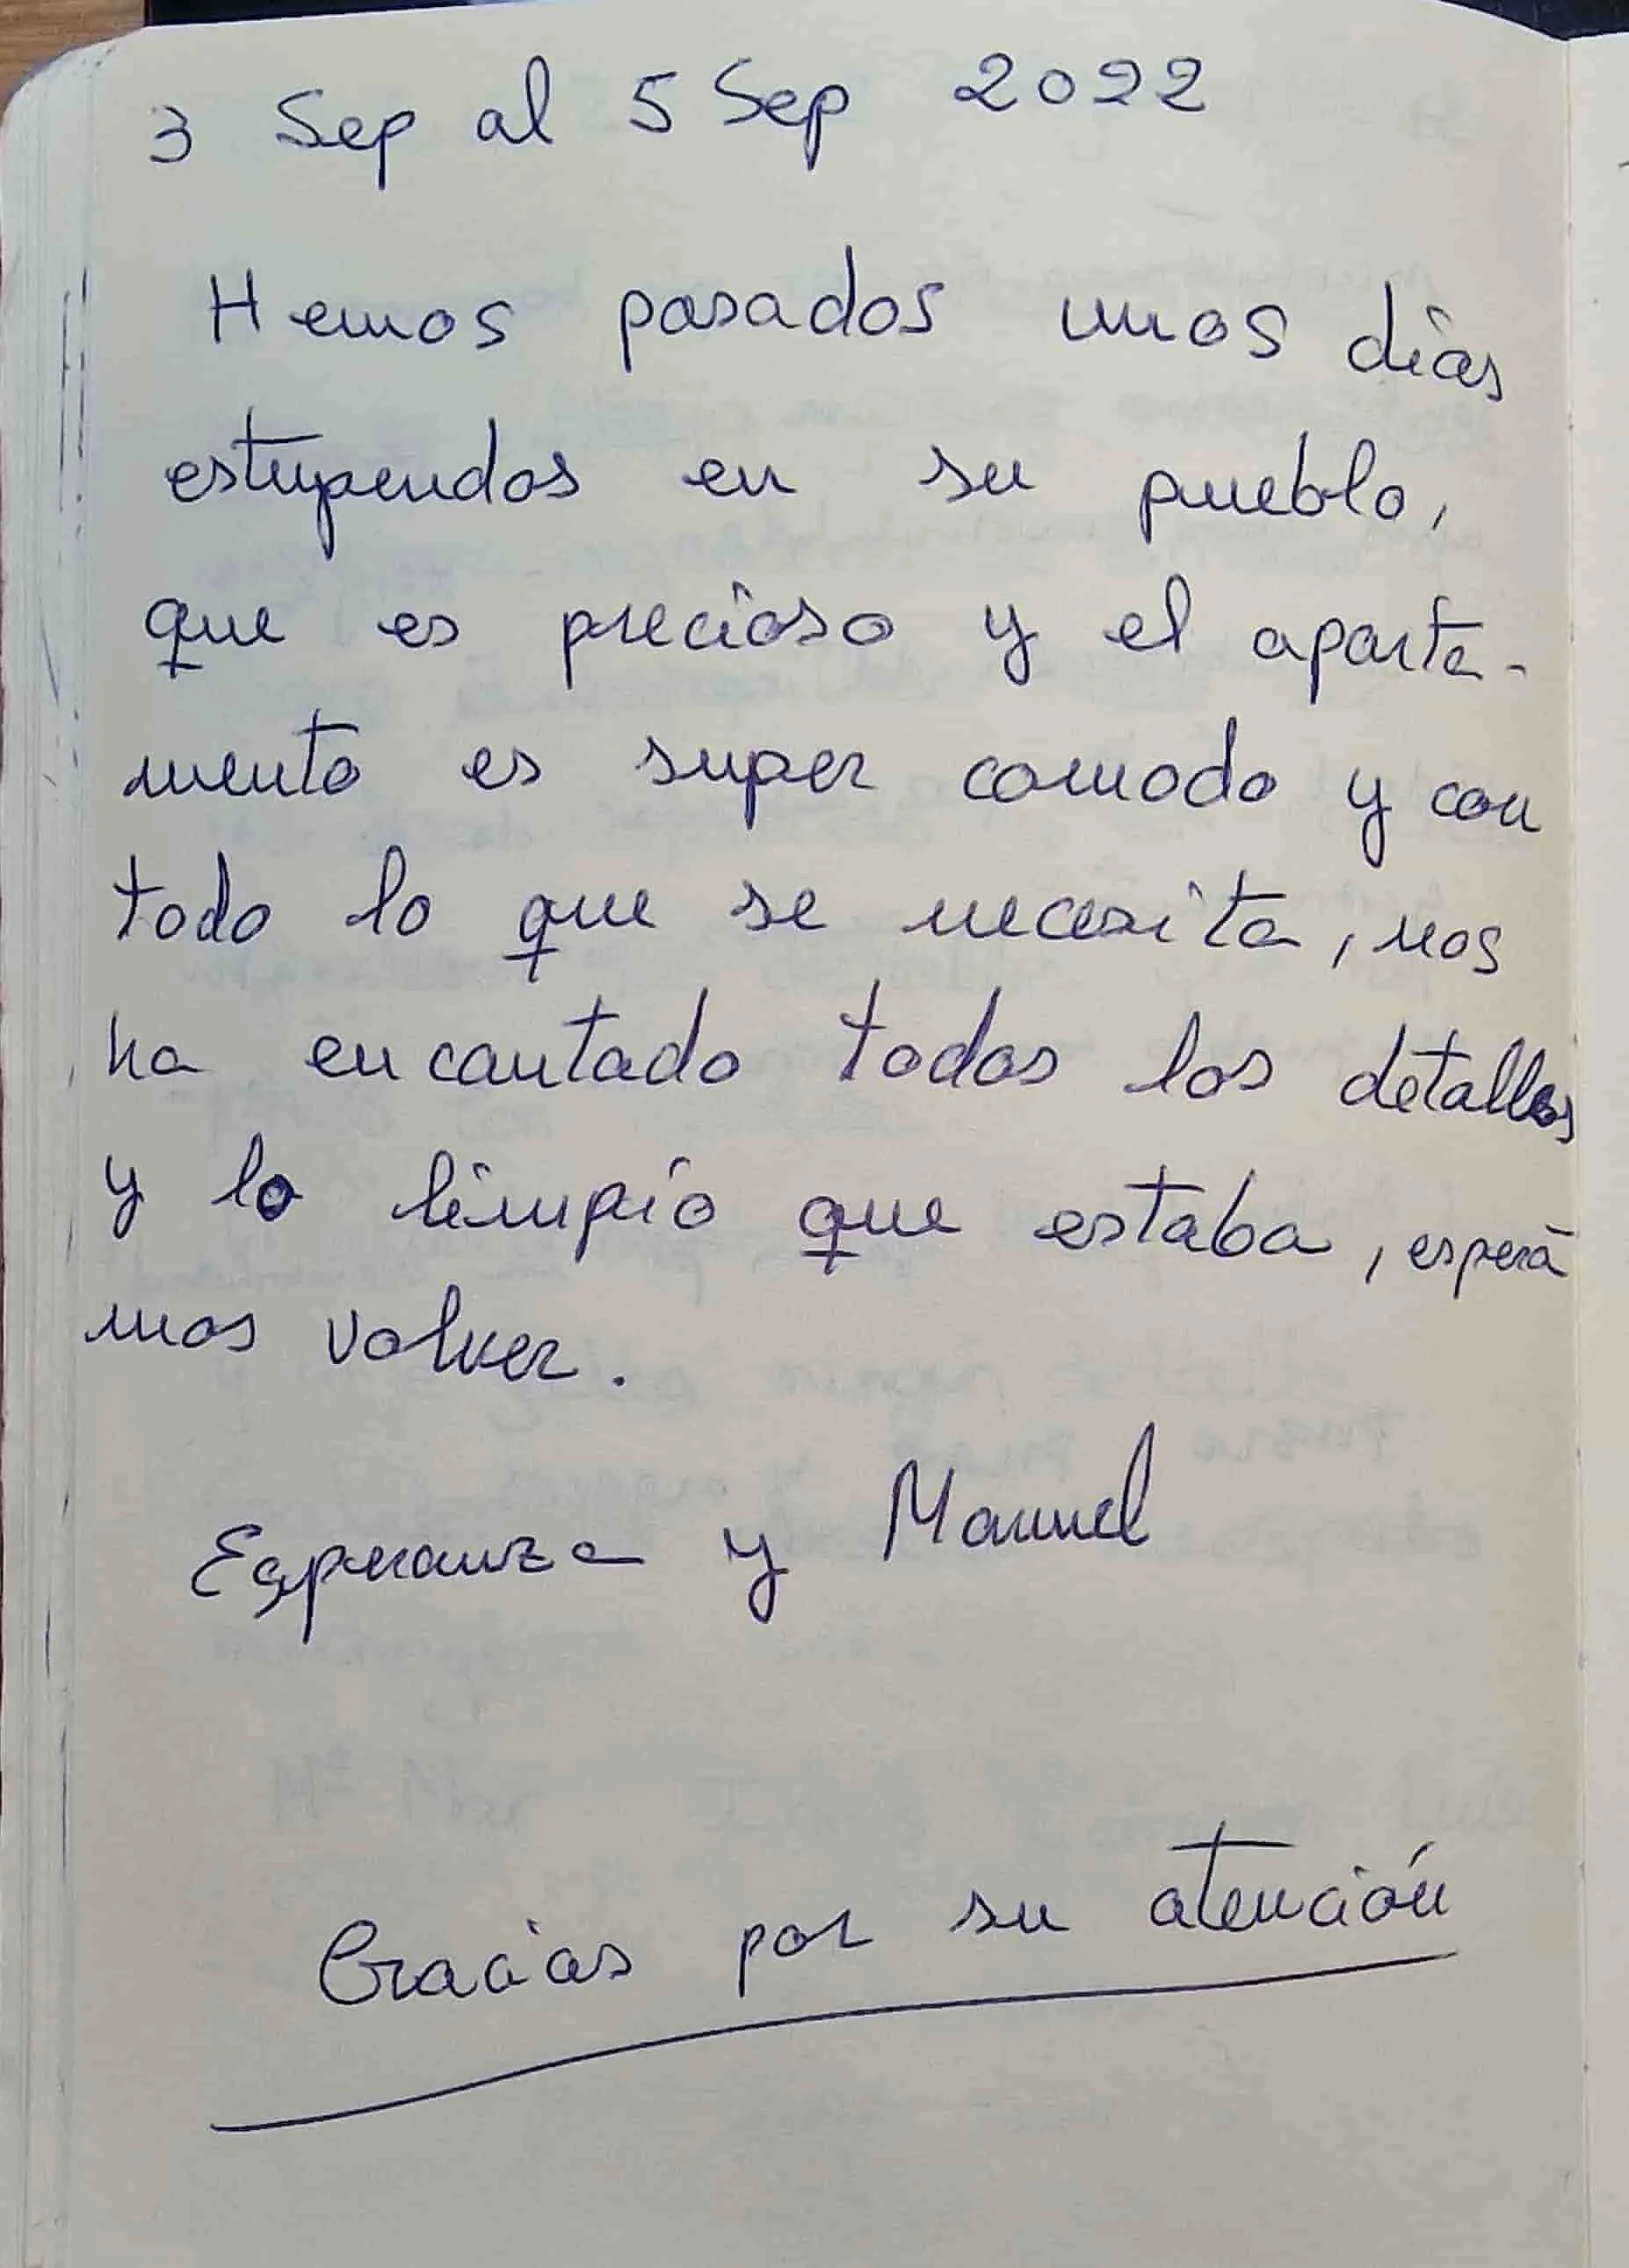 3 Sep al 5 Sep 2022
Hemos pasados unos días
estupendos en su pueblo,
que es precioso y el aparta-
mento es super comodo y con
todo lo que se necesita, nos
ha encantado todos los detalles
y lo limpio que estaba, espera-
mos volver.
Esperanza y Manuel
Gracias por su atención